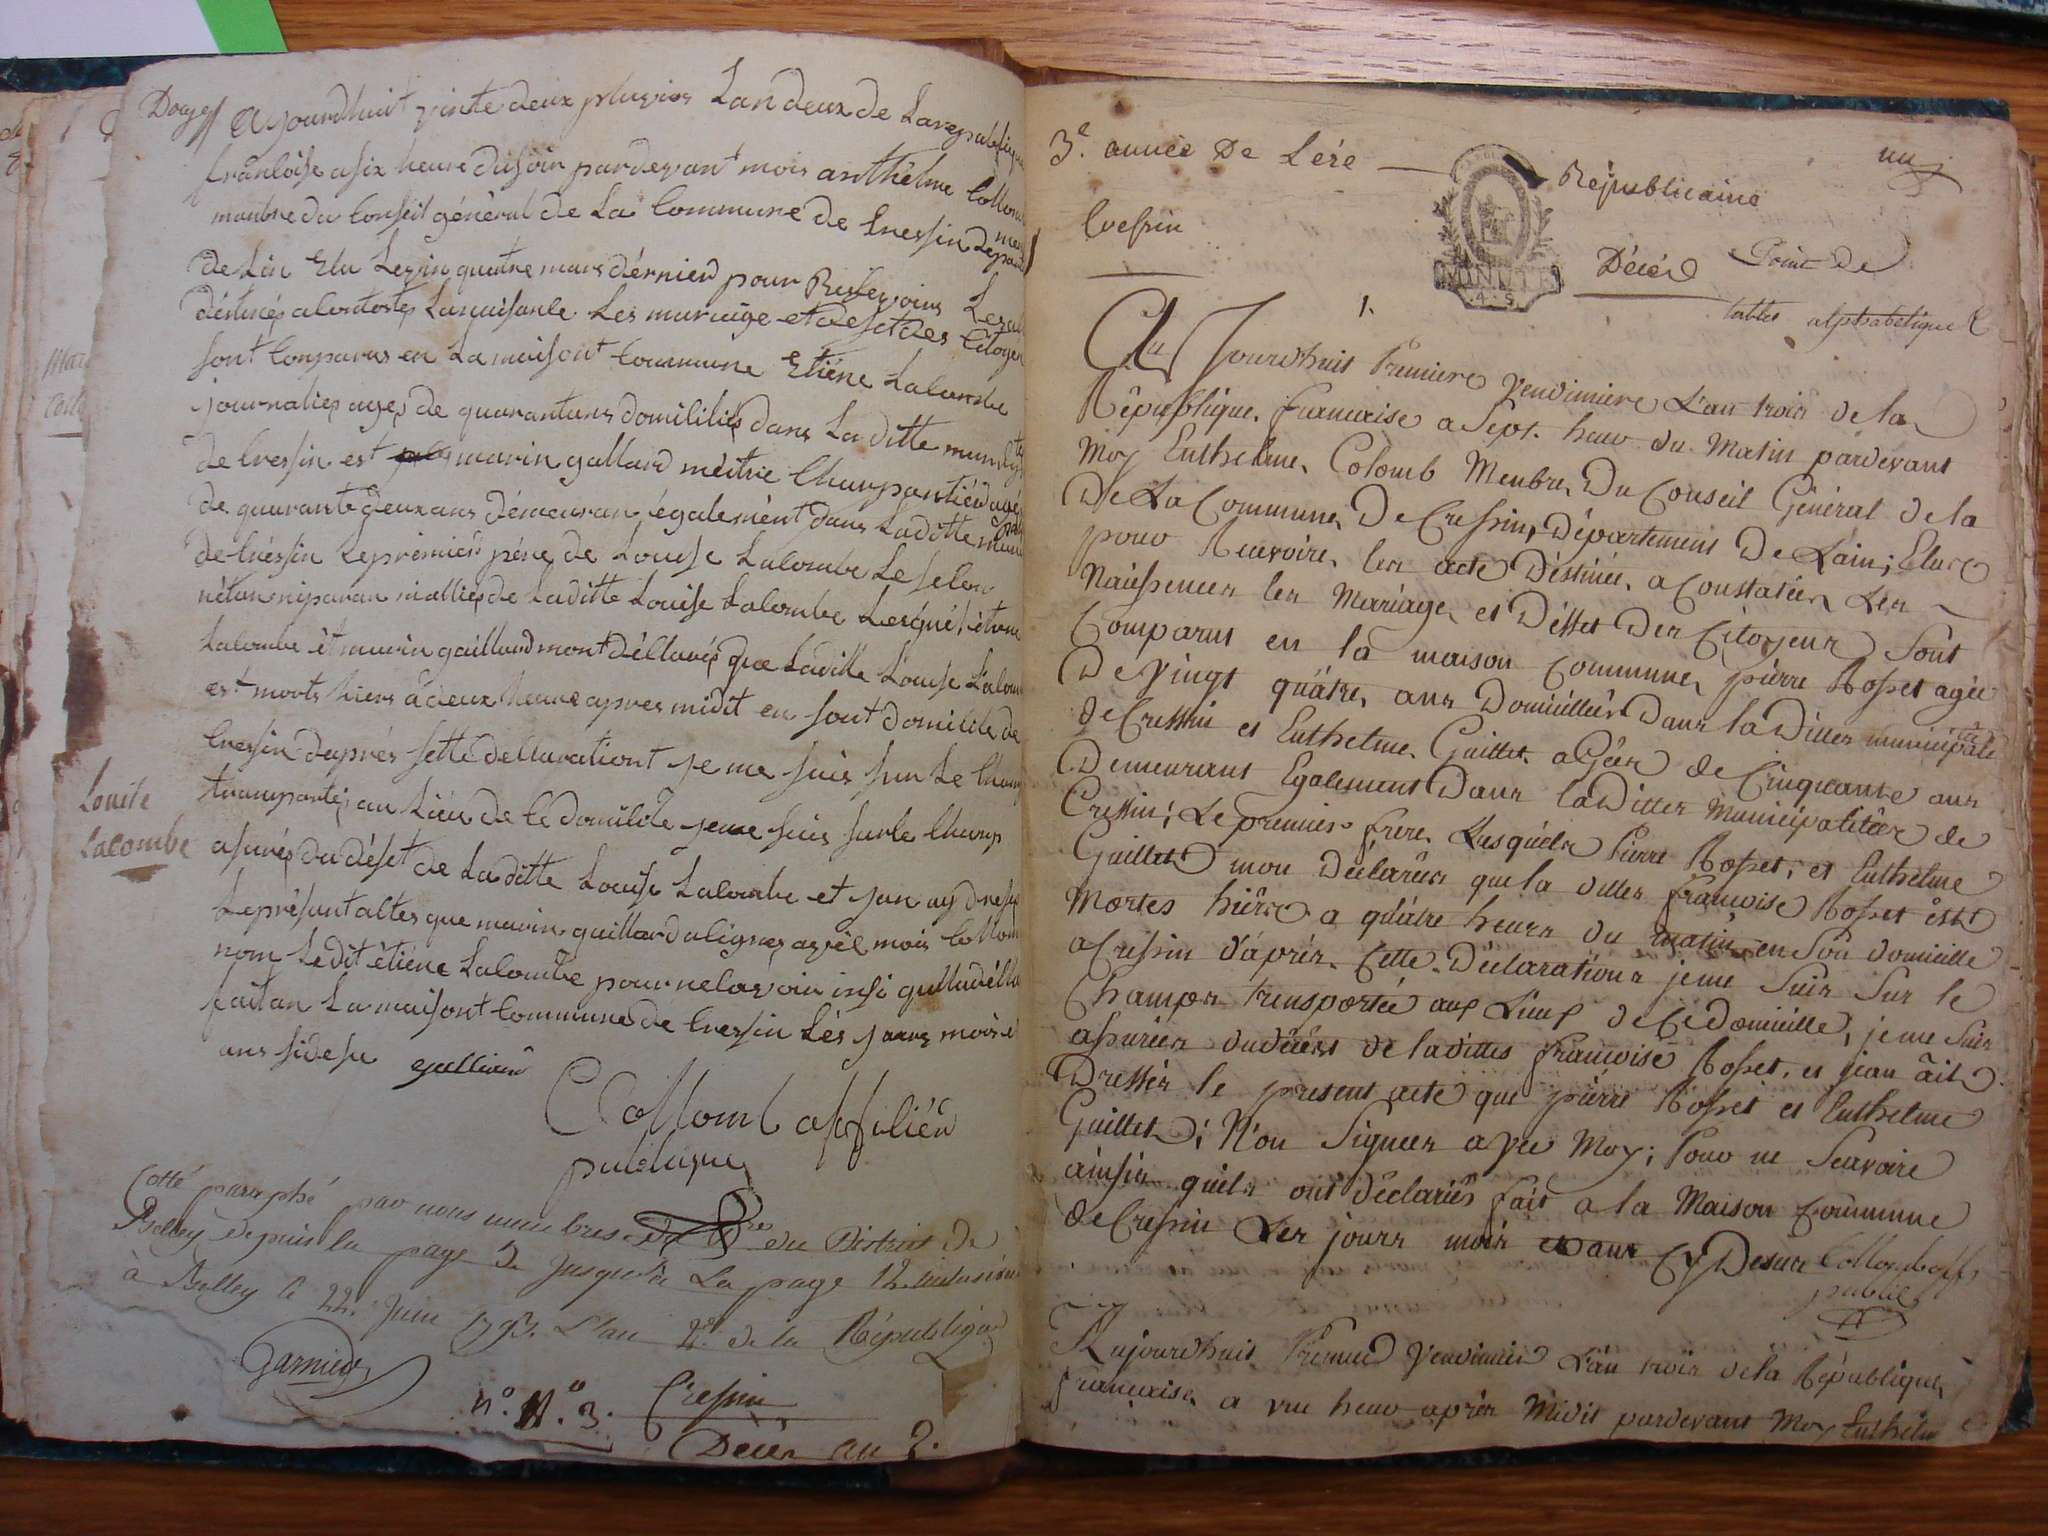 Douze
Ajourdhuit vinte deux pluvios Lan deux de Larepublique
franсoise asix heure dusoir pardevant mois anthelme Collom
manbre du Conseil général de La Commune de Cressin
de Lin Elu Le vin quatre mars dérnier pour
déstinés a Contates Les mariage et deset des Citoyen
sont Conparus en La maisont Commune Etiéne Lalombe
journalies ages de quarantans domiliés dans La ditte
de Cressin est marin gallard méitre Charpantiér agés
de quarante deux ans démeuran également dans Laditte
de Créssin Le prémier pére de Louise Lalombe Le selon
nétan niparan nialliés de Laditte Louise Lalombe
Lalombe èt marin gaillard mont déllarés que Laditte Louise
est morts hiers à deux heure apres midit en sont domilile de
Cressin daprés sette dellarationt je me suis sur Le
tranportés au Lieu de Ce domilile jeme suis surle Champ
asurés du déset de La ditte Louise Lalombe et
Le présant altes que marin gaillard a lignes avéc mois Collom
nom Ledit étiéne Lalombe pour ne lavoir
fait an La maisont Commune de Cressin Lés jours mois
ans sidesu gallierd
Collomb offiliér
publique
Louise
Lalombe
Cotté paraphé par nous membres du District de
Belley depuis la page 1e jusqu'à La page 12 inclusive
à Belley le 22. juin 1793. L'an 2e. de la République
Garnier
n° N°. 3. Cressin
Décès an 2.
3.e année De Lére Républicaine
un
Cressin
Décéd Point de
tables alphabétique
1.
Au Jourdhuis Premiere Vendimiere L'an trois de la
République francaise a Sept. heur du Matin pardevant
Moy Enthelme Colomb Menbre Du Conseil Général de la
De La Commune De Cressin, Département De Lain; Elue
pour Recevoire les acte Déstinée a Constatier Les
Naissences les Mariage et Désset Des Citoyens Sont
Comparus en la maison Commune pièrre Rosset agée
De Vingt quâtre ans Domicilliés Dans la Ditte municipalité
de Cressin et Enthelme Guillet agées de Cinquante ans
Demeurans Egalement Dans la Ditte Municipalitée de
Cressin; Le premier frere Lesquels Pierre Rosset, et Enthelme
Guillet mon Déclarées que la ditte francoise Rosset est
Mortes hière a quâtre heure du matin en Son domicille
a Cressin d'après Cette Déclaration je me Suis Sur le
Champs trensportée aux Lieux de Ce domicille, je me Suis
assurées du décès de laditte francoise Rosset, et jean ait
Dressér le present acte que pièrre Rosset et Enthelme
Guillet; N'on Signer avec Moy; Pour ne Scavoire
ainsin quils ont déclariés fait a la Maison Commune
de Cressin Les jours mois et ans Cy Desur Collomb off
public
Aujourdhuis Premier Vendimier L'an trois de la République
francaise a une heur après Midis pardevant Moy Enthelme